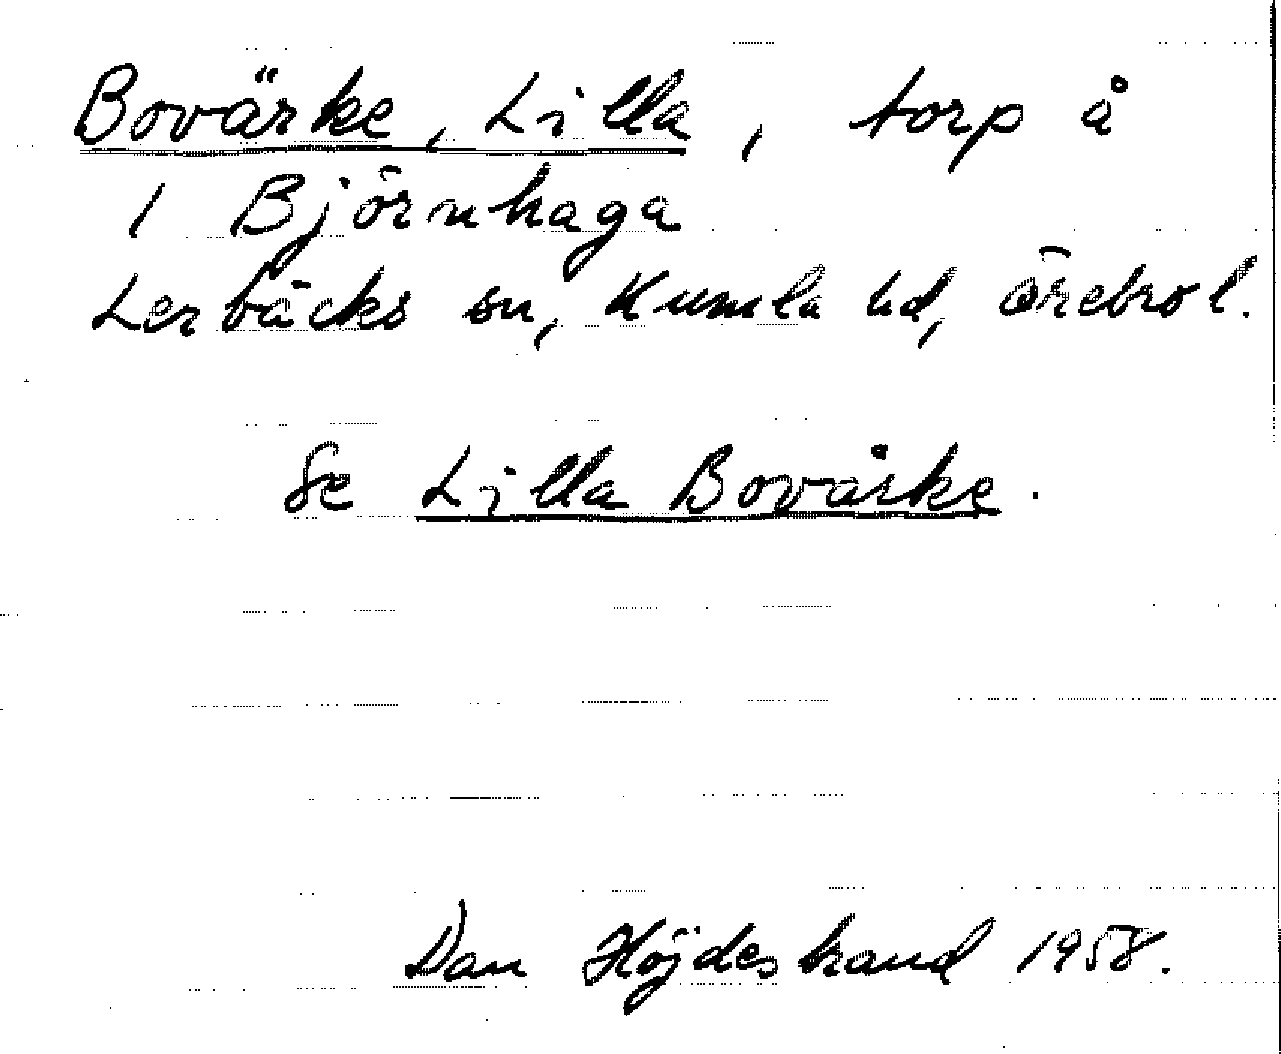 Bovärke, Lilla, torp å
1 Björnhaga
Lerbäcks sn, Kumla hd, Örebro l.
Se Lilla Bovärke.
Dan Höjdestrand 1958.